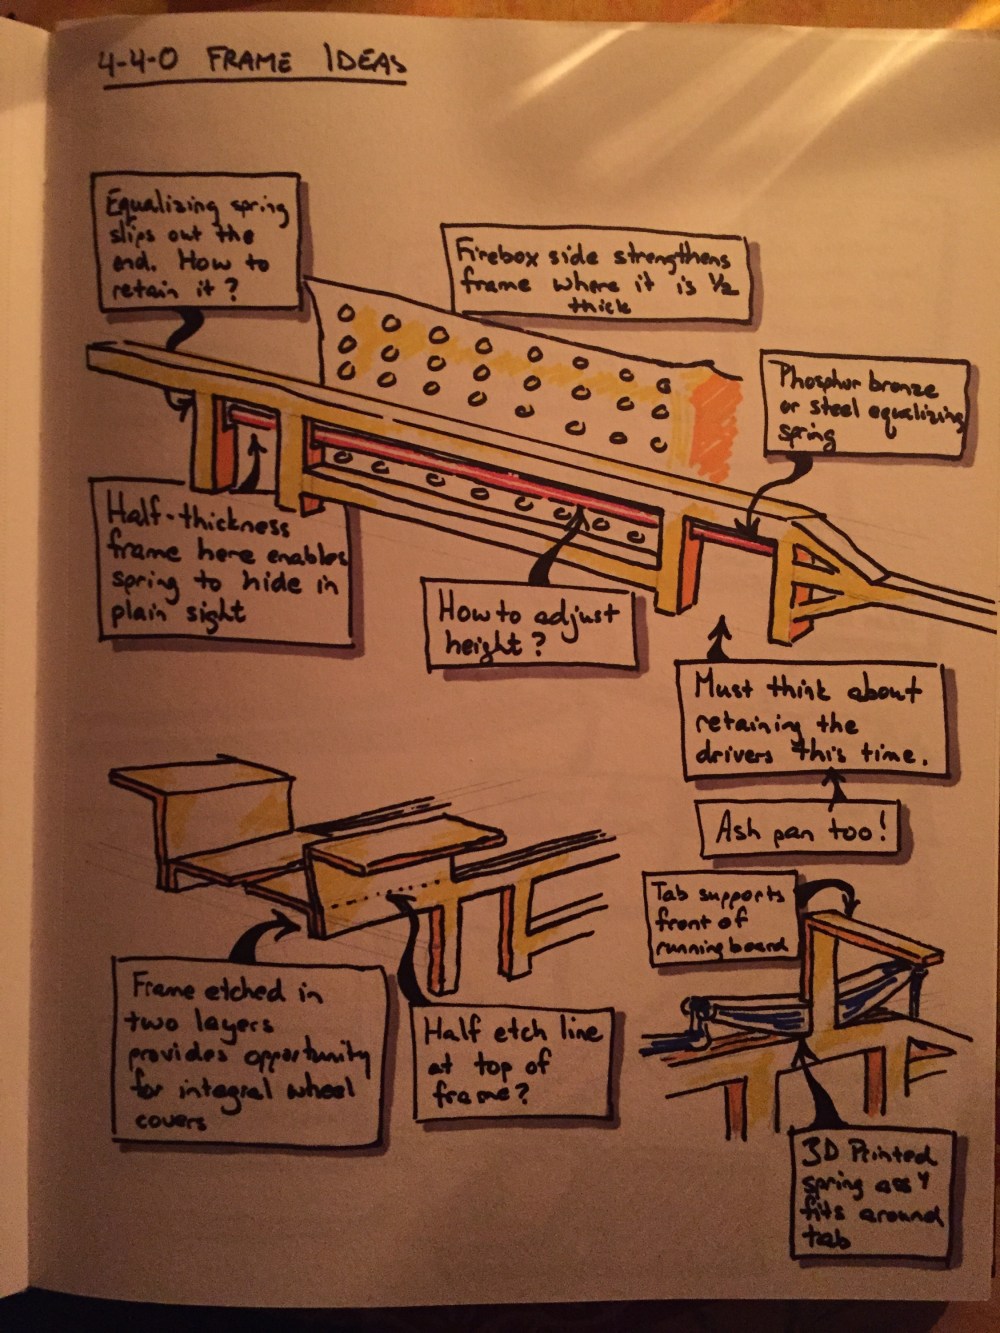 4-4-0 FRAME IDEAS
Equalizing spring
slips out the
end. How to
retain it?
Firebox side strengthens
frame where it is 1/2
thick
Phosphur bronze
or steel equalizing
spring
Half-thickness
frame here enables
spring to hide in
plain sight
How to adjust
height?
Must think about
retaining the
drivers this time.
Ash pan too!
Tab supports
front of
running board
Frame etched in
two layers
provides opportunity
for integral wheel
covers
Half etch line
at top of
frame?
3D Printed
spring ass'y
fits around
tab